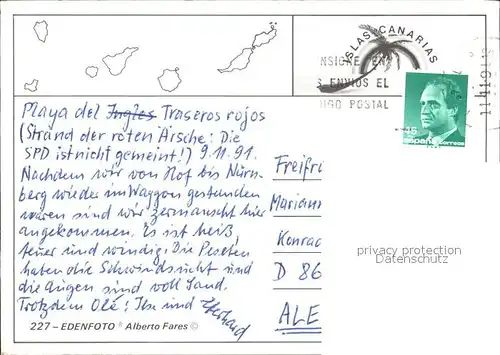 ISLAS CANARIAS
NSIGNE EN
S ENVIOS EL
IGO POSTAL
45
España correos
Playa del Ingles Traseros rojos
(Strand der roten Ärsche: Die
SPD ist nicht gemeint!) 9.11.91.
Nachdem wir von Hof bis Nürn-
berg wieder im Waggon gestanden
waren sind wir zermanscht hier
angekommen. Es ist heiß,
teuer und windig. Die Peseten
haben die Schwindsucht und
die Augen sind voll Sand.
Trotzdem Olé! Ilse und Eberhard
Freifr
Mariann
Konrad
D 86
ALE
privacy protection
Datenschutz
227 – EDENFOTO ® Alberto Fares ©